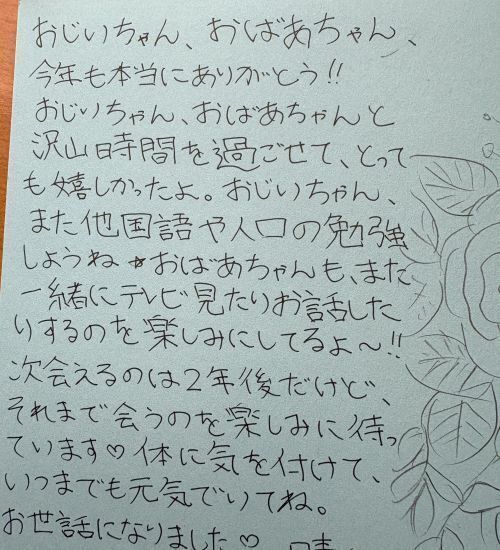 おじいちゃん、おばあちゃん、
今年も本当にありがとう!!
おじいちゃん、おばあちゃんと
沢山時間を過ごせて、とって
も嬉しかったよ。おじいちゃん、
また他国語や人口の勉強
しようね☆おばあちゃんも、また
一緒にテレビ見たりお話した
りするのを楽しみにしてるよ〜!!
次会えるのは2年後だけど、
それまで会うのを楽しみに待っ
ています♡体に気を付けて、
いつまでも元気でいてね。
お世話になりました♡